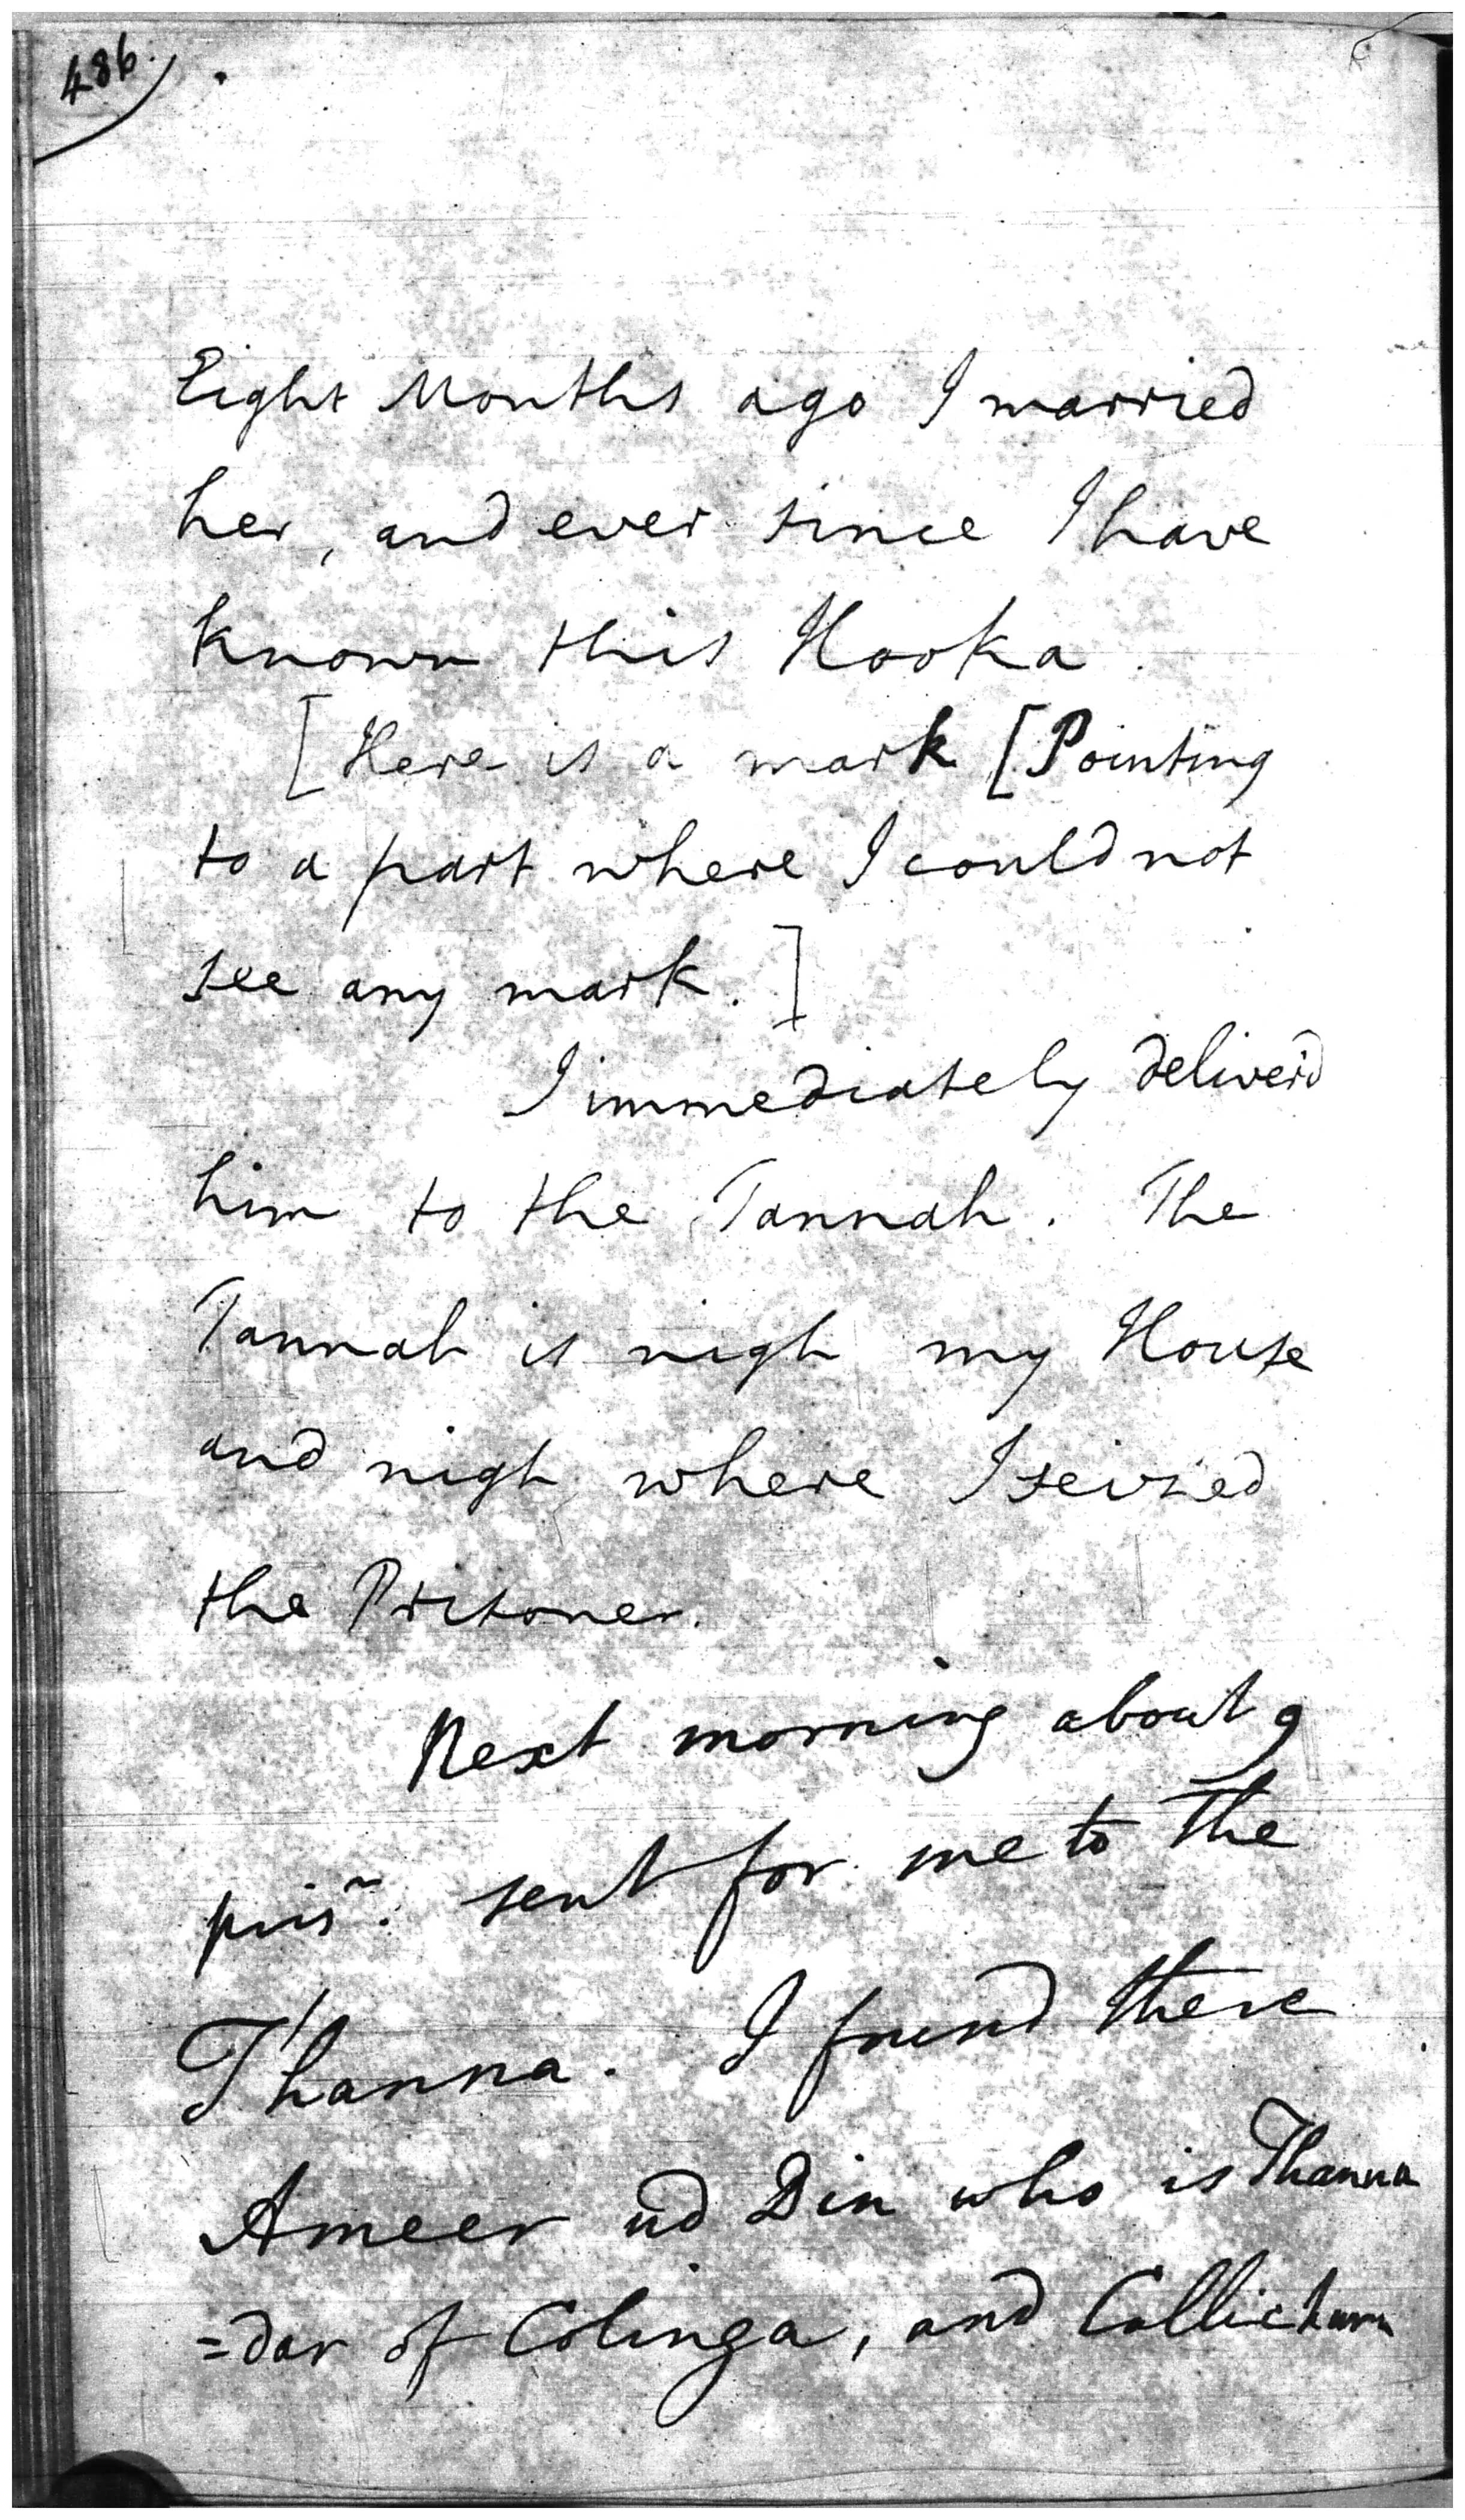 486.
Eight Months ago I married
her, and ever since I have
known this Hooka.
[Here is a mark [Pointing
to a part where I could not
see any mark.]
I immediately deliver'd
him to the Tannah. The
Tannah is nigh my House
and nigh where I seized
the Prisoner.
Next morning about 9
pris~. sent for me to the
Thanna. I found there
Ameer ud Din who is Thanna
=dar of Colinga, and Callichurn